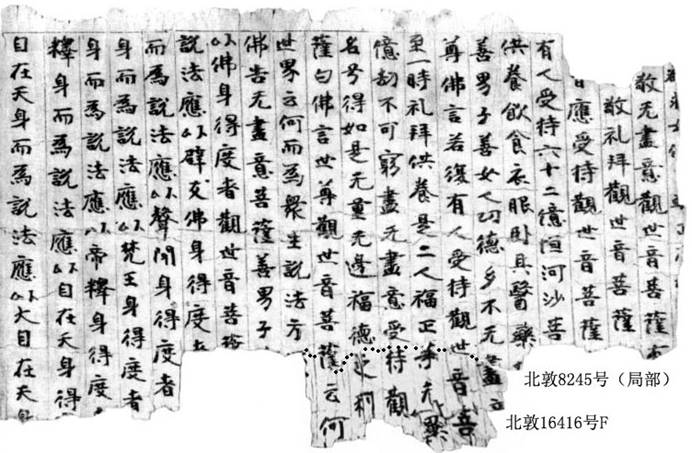 敬无盡意觀世音菩薩
敬礼拜觀世音菩薩
應受持觀世音菩薩
有人受持六十二億恒河沙菩
供養飲食衣服卧具醫藥
善男子善女人功德多不无盡
尊佛言若復有人受持觀世音菩
至一時礼拜供養是二人福正等无異
億劫不可窮盡无盡意受持觀
名号得如是无量无邊福德之利
薩白佛言世尊觀世音菩薩云何
世界云何而為衆生說法方
佛告无盡意菩薩善男子
以佛身得度者觀世音菩薩
說法應以辟支佛身得度
而為說法應以聲聞身得度者
身而為說法應以梵王身得度者
身而為說法應以帝釋身得度
釋身而為說法應以自在天身得
自在天身而為說法應以大自在天身
北敦8245号（局部）
北敦16416号F